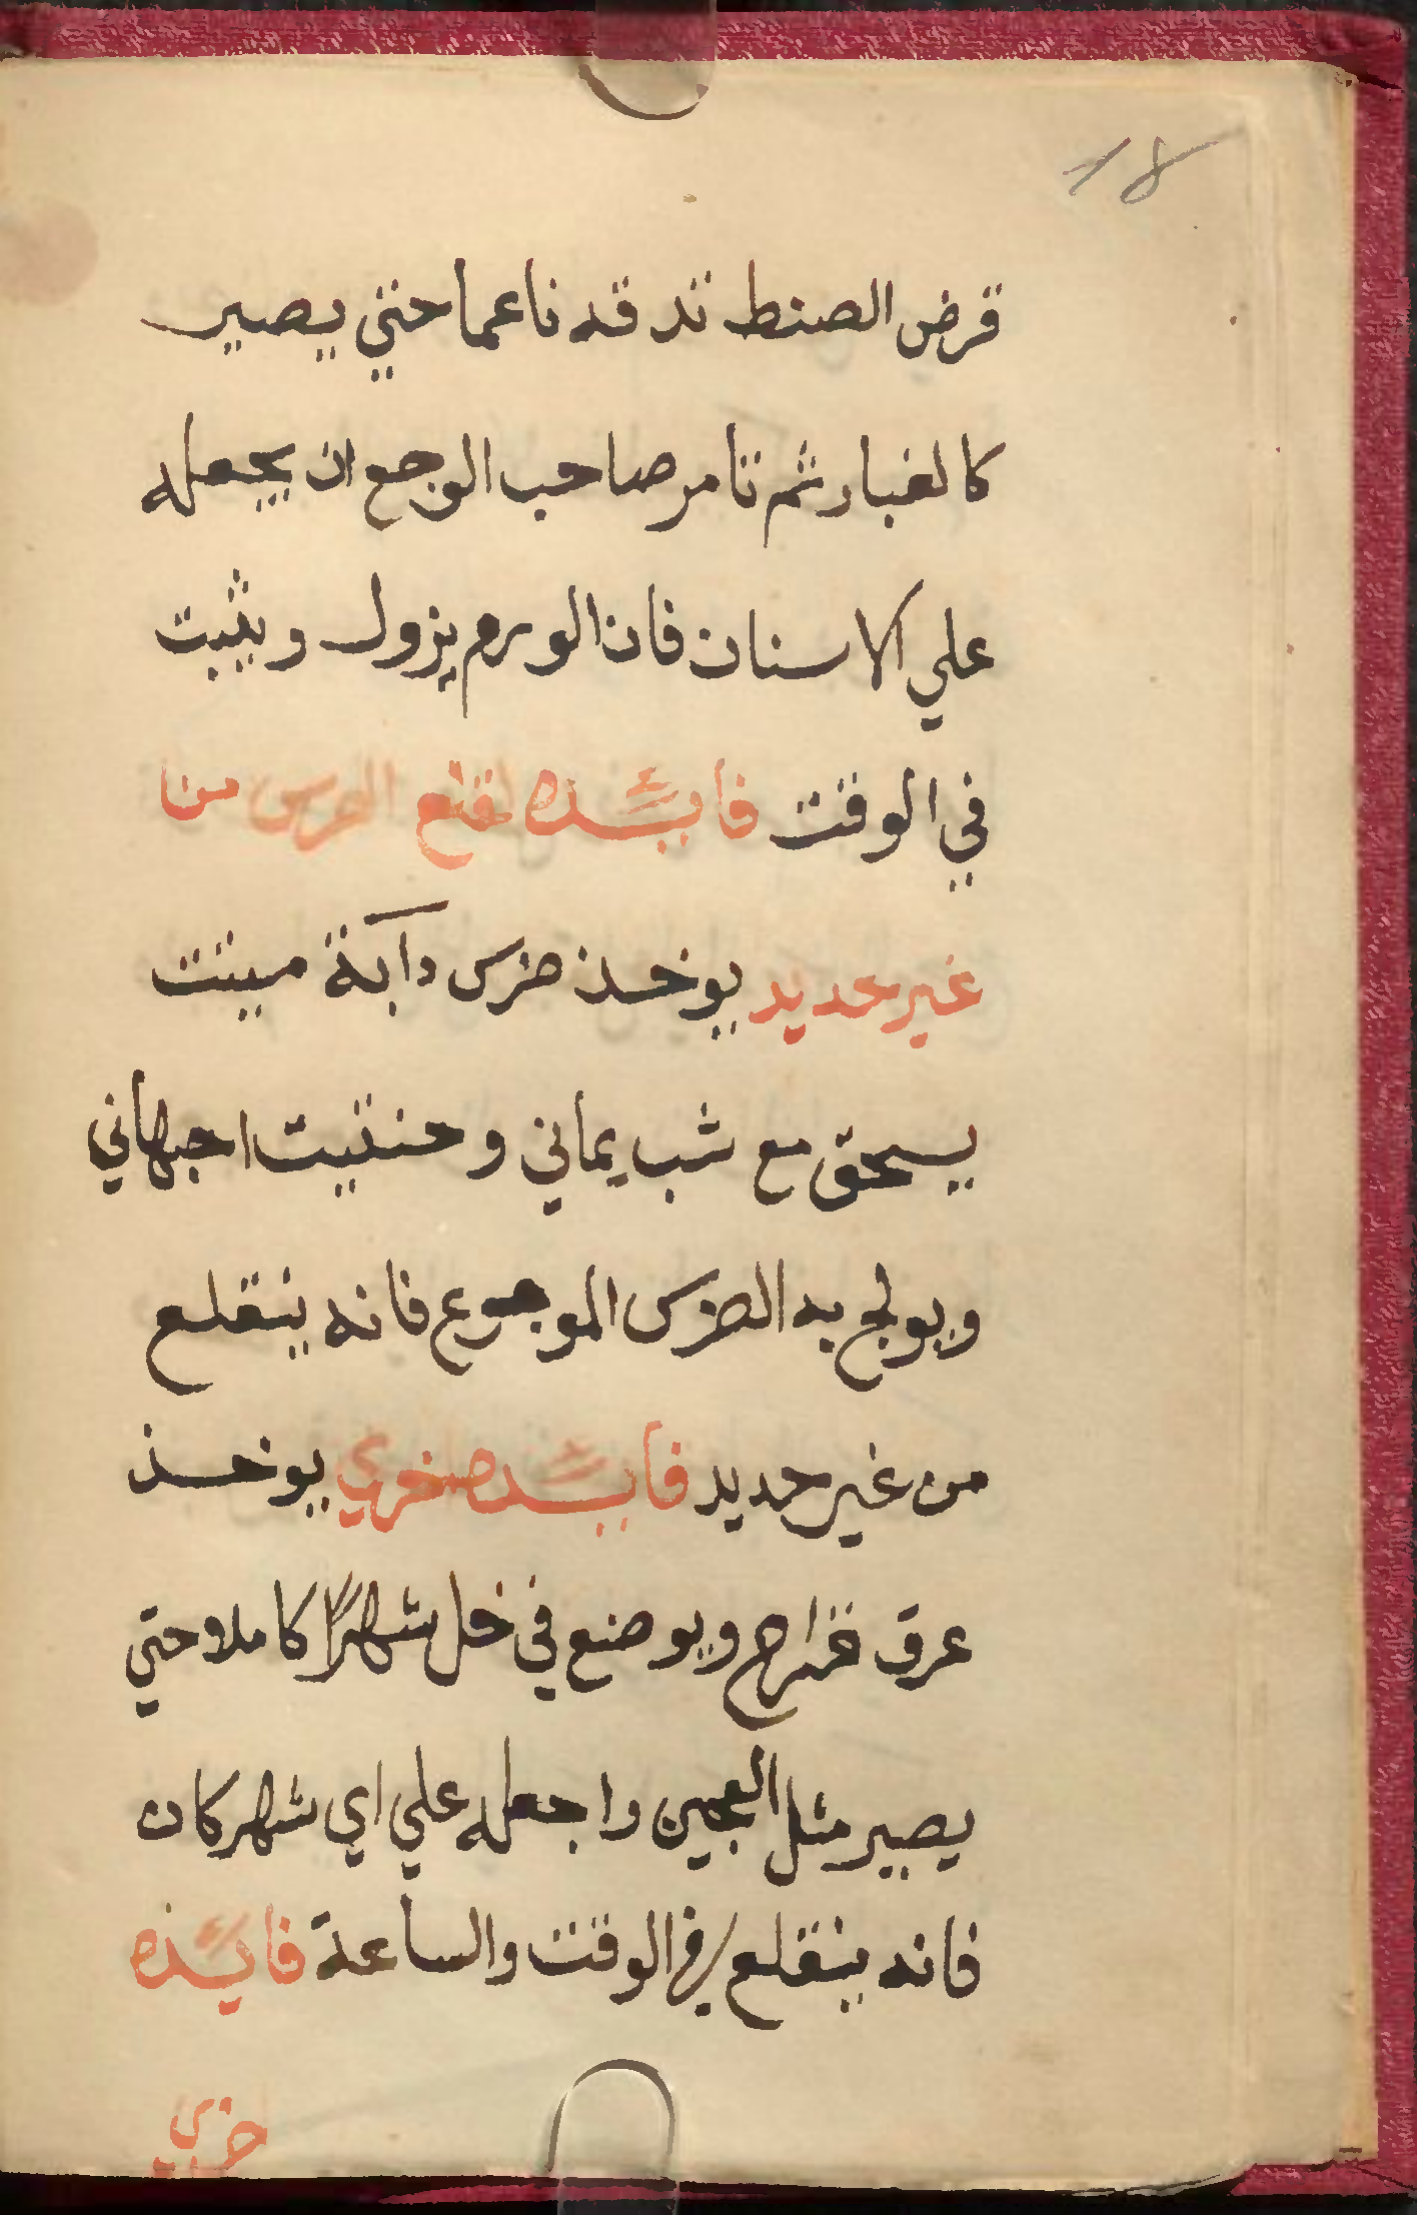 18
قرض الصنط تدقه ناعما حتي يصير
كالغبار ثم تامر صاحب الوجع ان يجعله
علي الاسنان فان الورم يزول ويثبت
في الوقت فايئده لقلع الضرس من
غير حديد يوخذ ضرس دآبة ميتت
يسحق مع شب يماني وحنتيت اجبهاني
ويولج به الضرس الموجوع فانه ينقلع
من غير حديد فايئده خري يوخذ
عرق وبوضع في خل شهرًا كاملا حتي
يصير مثل العجين واجعله علي اي شهر كان
فانه ينقلع في الوقت والساعة فايئده
خري